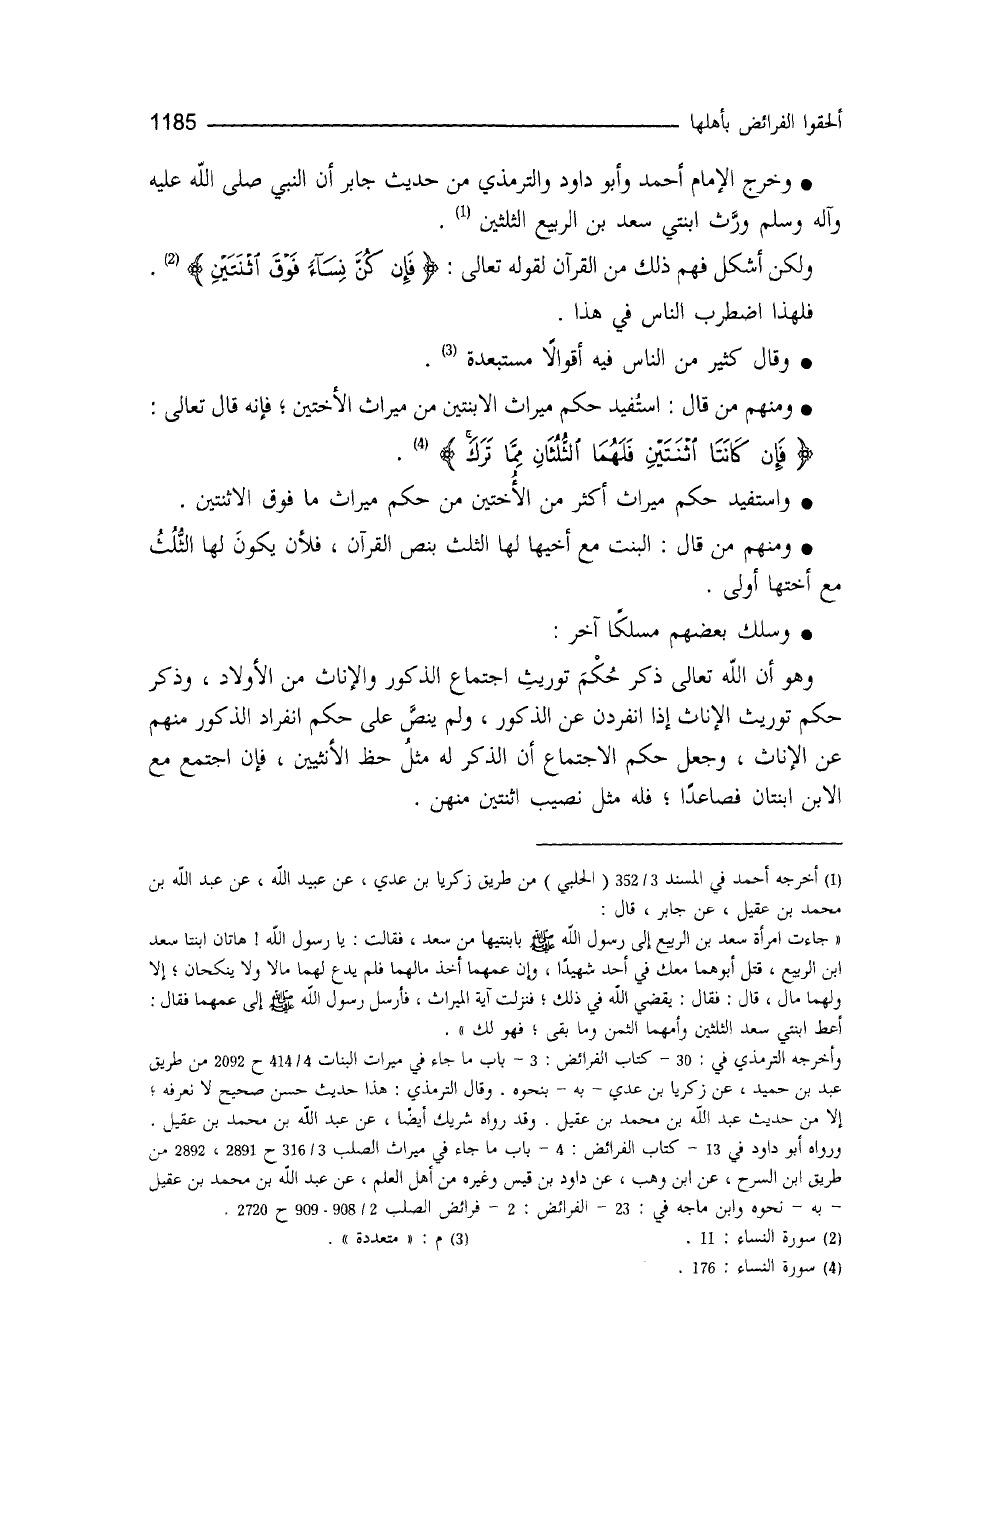 ألحقوا الفرائض بأهلها 1185
● وخرج الإمام أحمد وأبو داود والترمذي من حديث جابر أن النبي صلى اللّه عليه
وآله وسلم ورَّث ابنتي سعد بن الربيع الثلثين (1) .
ولكن أشكل فهم ذلك من القرآن لقوله تعالى : ﴿ فَإِن كُنَّ نِسَآءً فَوْقَ ٱثْنَتَيْنِ ﴾ (2) .
فلهذا اضطرب الناس في هذا .
● وقال كثير من الناس فيه أقوالًا مستبعدة (3) .
● ومنهم من قال : استُفيد حكم ميراث الابنتين من ميراث الأختين ؛ فإنه قال تعالى :
﴿ فَإِن كَانَتَا ٱثْنَتَيْنِ فَلَهُمَا ٱلثُّلُثَانِ مِمَّا تَرَكَۚ ﴾ (4) .
● واستفيد حكم ميراث أكثر من الأُختين من حكم ميراث ما فوق الاثنتين .
● ومنهم من قال : البنت مع أخيها لها الثلث بنص القرآن ، فلأن يكونَ لها الثُّلُثُ
مع أختها أولى .
● وسلك بعضهم مسلكًا آخر :
وهو أن اللّه تعالى ذكر حُكْمَ توريثِ اجتماع الذكور والإناث من الأولاد ، وذكر
حكم توريث الإناث إذا انفردن عن الذكور ، ولم ينصَّ على حكم انفراد الذكور منهم
عن الإناث ، وجعل حكم الاجتماع أن الذكر له مثلُ حظ الأنثيين ، فإن اجتمع مع
الابن ابنتان فصاعدًا ؛ فله مثل نصيب اثنتين منهن .
(1) أخرجه أحمد في المسند 352/3 ( الحلبي ) من طريق زكريا بن عدي ، عن عبيد اللّه ، عن عبد اللّه بن
محمد بن عقيل ، عن جابر ، قال :
« جاءت امرأة سعد بن الربيع إلى رسول اللّه ﷺ بابنتيها من سعد ، فقالت : يا رسول اللّه ! هاتان ابنتا سعد
ابن الربيع ، قتل أبوهما معك في أحد شهيدًا ، وإن عمهما أخذ مالهما فلم يدع لهما مالا ولا ينكحان ؛ إلا
ولهما مال ، قال : فقال : يقضي اللّه في ذلك ؛ فنزلت آية الميراث ، فأرسل رسول اللّه ﷺ إلى عمهما فقال :
أعط ابنتي سعد الثلثين وأمهما الثمن وما بقى ؛ فهو لك » .
وأخرجه الترمذي في : 30 - كتاب الفرائض : 3 - باب ما جاء في ميراث البنات 414/4 ح 2092 من طريق
عبد بن حميد ، عن زكريا بن عدي - به - بنحوه . وقال الترمذي : هذا حديث حسن صحيح لا نعرفه ؛
إلا من حديث عبد اللّه بن محمد بن عقيل . وقد رواه شريك أيضًا ، عن عبد اللّه بن محمد بن عقيل .
ورواه أبو داود في 13 - كتاب الفرائض : 4 - باب ما جاء في ميراث الصلب 316/3 ح 2891 ، 2892 من
طريق ابن السرح ، عن ابن وهب ، عن داود بن قيس وغيره من أهل العلم ، عن عبد اللّه بن محمد بن عقيل
- به - نحوه وابن ماجه في : 23 - الفرائض : 2 - فرائض الصلب 908/2 - 909 ح 2720 .
(2) سورة النساء : 11 . (3) م : « متعددة » .
(4) سورة النساء : 176 .